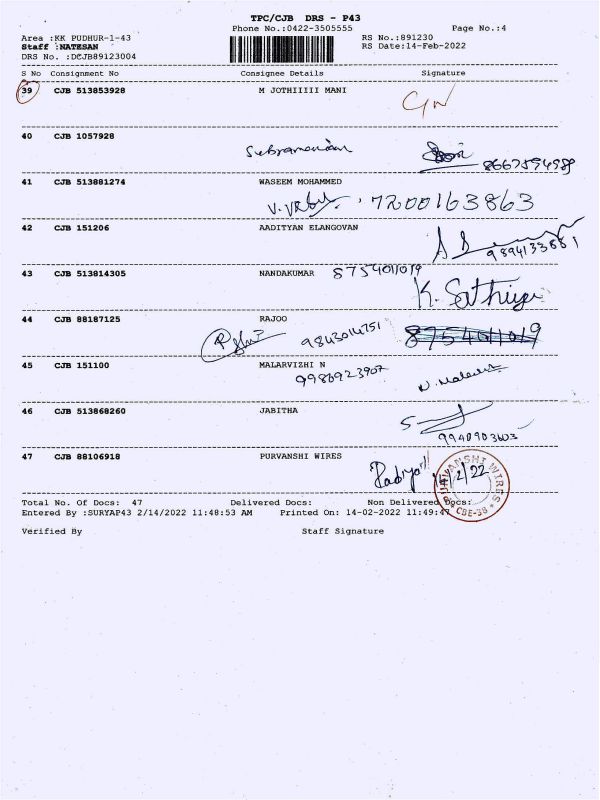 TPC/CJB DRS - P43
Phone No.:0422-3505555 Page No.:4
Area :KK PUDHUR-1-43 RS No.:891230
Staff :NATESAN RS Date:14-Feb-2022
DRS No. :DCJB89123004
S No Consignment No Consignee Details Signature
39 CJB 513853928 M JOTHIIIII MANI
40 CJB 1057928
Subramaniam 8667594989
41 CJB 513881274 WASEEM MOHAMMED
7200163863
42 CJB 151206 AADITYAN ELANGOVAN
9894133881
43 CJB 513814305 NANDAKUMAR 8754011019
K. Sathiya
44 CJB 88187125 RAJOO
9843014751 8754011019
45 CJB 151100 MALARVIZHI N
9986923907 N. Malar
46 CJB 513868260 JABITHA
9940903603
47 CJB 88106918 PURVANSHI WIRES
Padiya PURVANSHI WIRES
14/2/22
CBE-38
Total No. Of Docs: 47 Delivered Docs: Non Delivered Docs:
Entered By :SURYAP43 2/14/2022 11:48:53 AM Printed On: 14-02-2022 11:49:47
Verified By Staff Signature